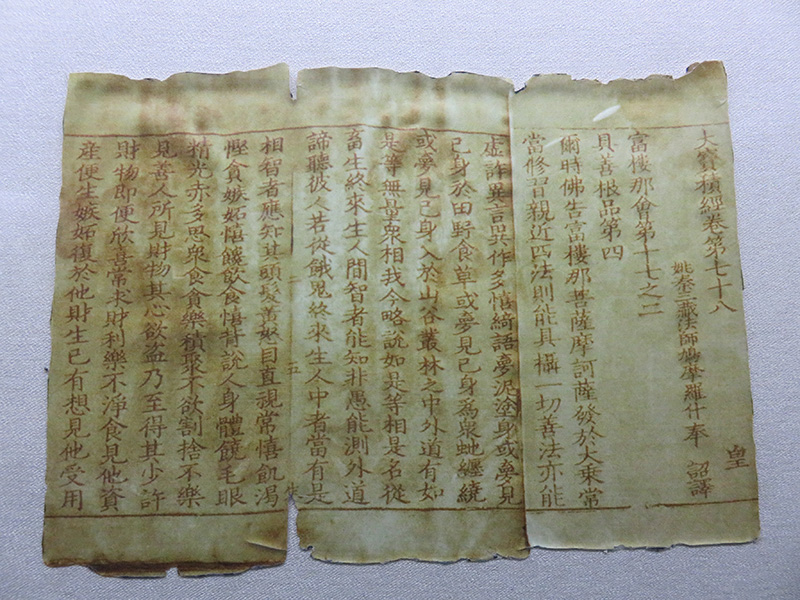 大寶積經卷第七十八 皇
姚秦三藏法師鳩摩羅什奉 詔譯
富樓那會第十七之二
具善根品第四
爾時佛告富樓那菩薩摩訶薩發於大乘常
當修習親近四法則能具攝一切善法亦能
虛詐異言異作多慳綺語夢泥塗身或夢見
己身於田野食草或夢見己身爲衆虵纏繞
或夢見己身入於山谷叢林之中外道有如
是等無量衆相我今略說如是等相是名從
畜生終來生人間智者能知非愚能測外道
諦聽彼人若從餓鬼終來生人中者當有是
相智者應知其頭髮黃怒目直視常憘飢渴
慳貪嫉妬憘饒飲食憘背說人身體饒毛眼
精光赤多思衆食貪樂積聚不欲割捨不樂
見善人所見財物其心欲盜乃至得其少許
財物即便欣喜常求財利樂不淨食見他資
産便生嫉妬復於他財生己有想見他受用